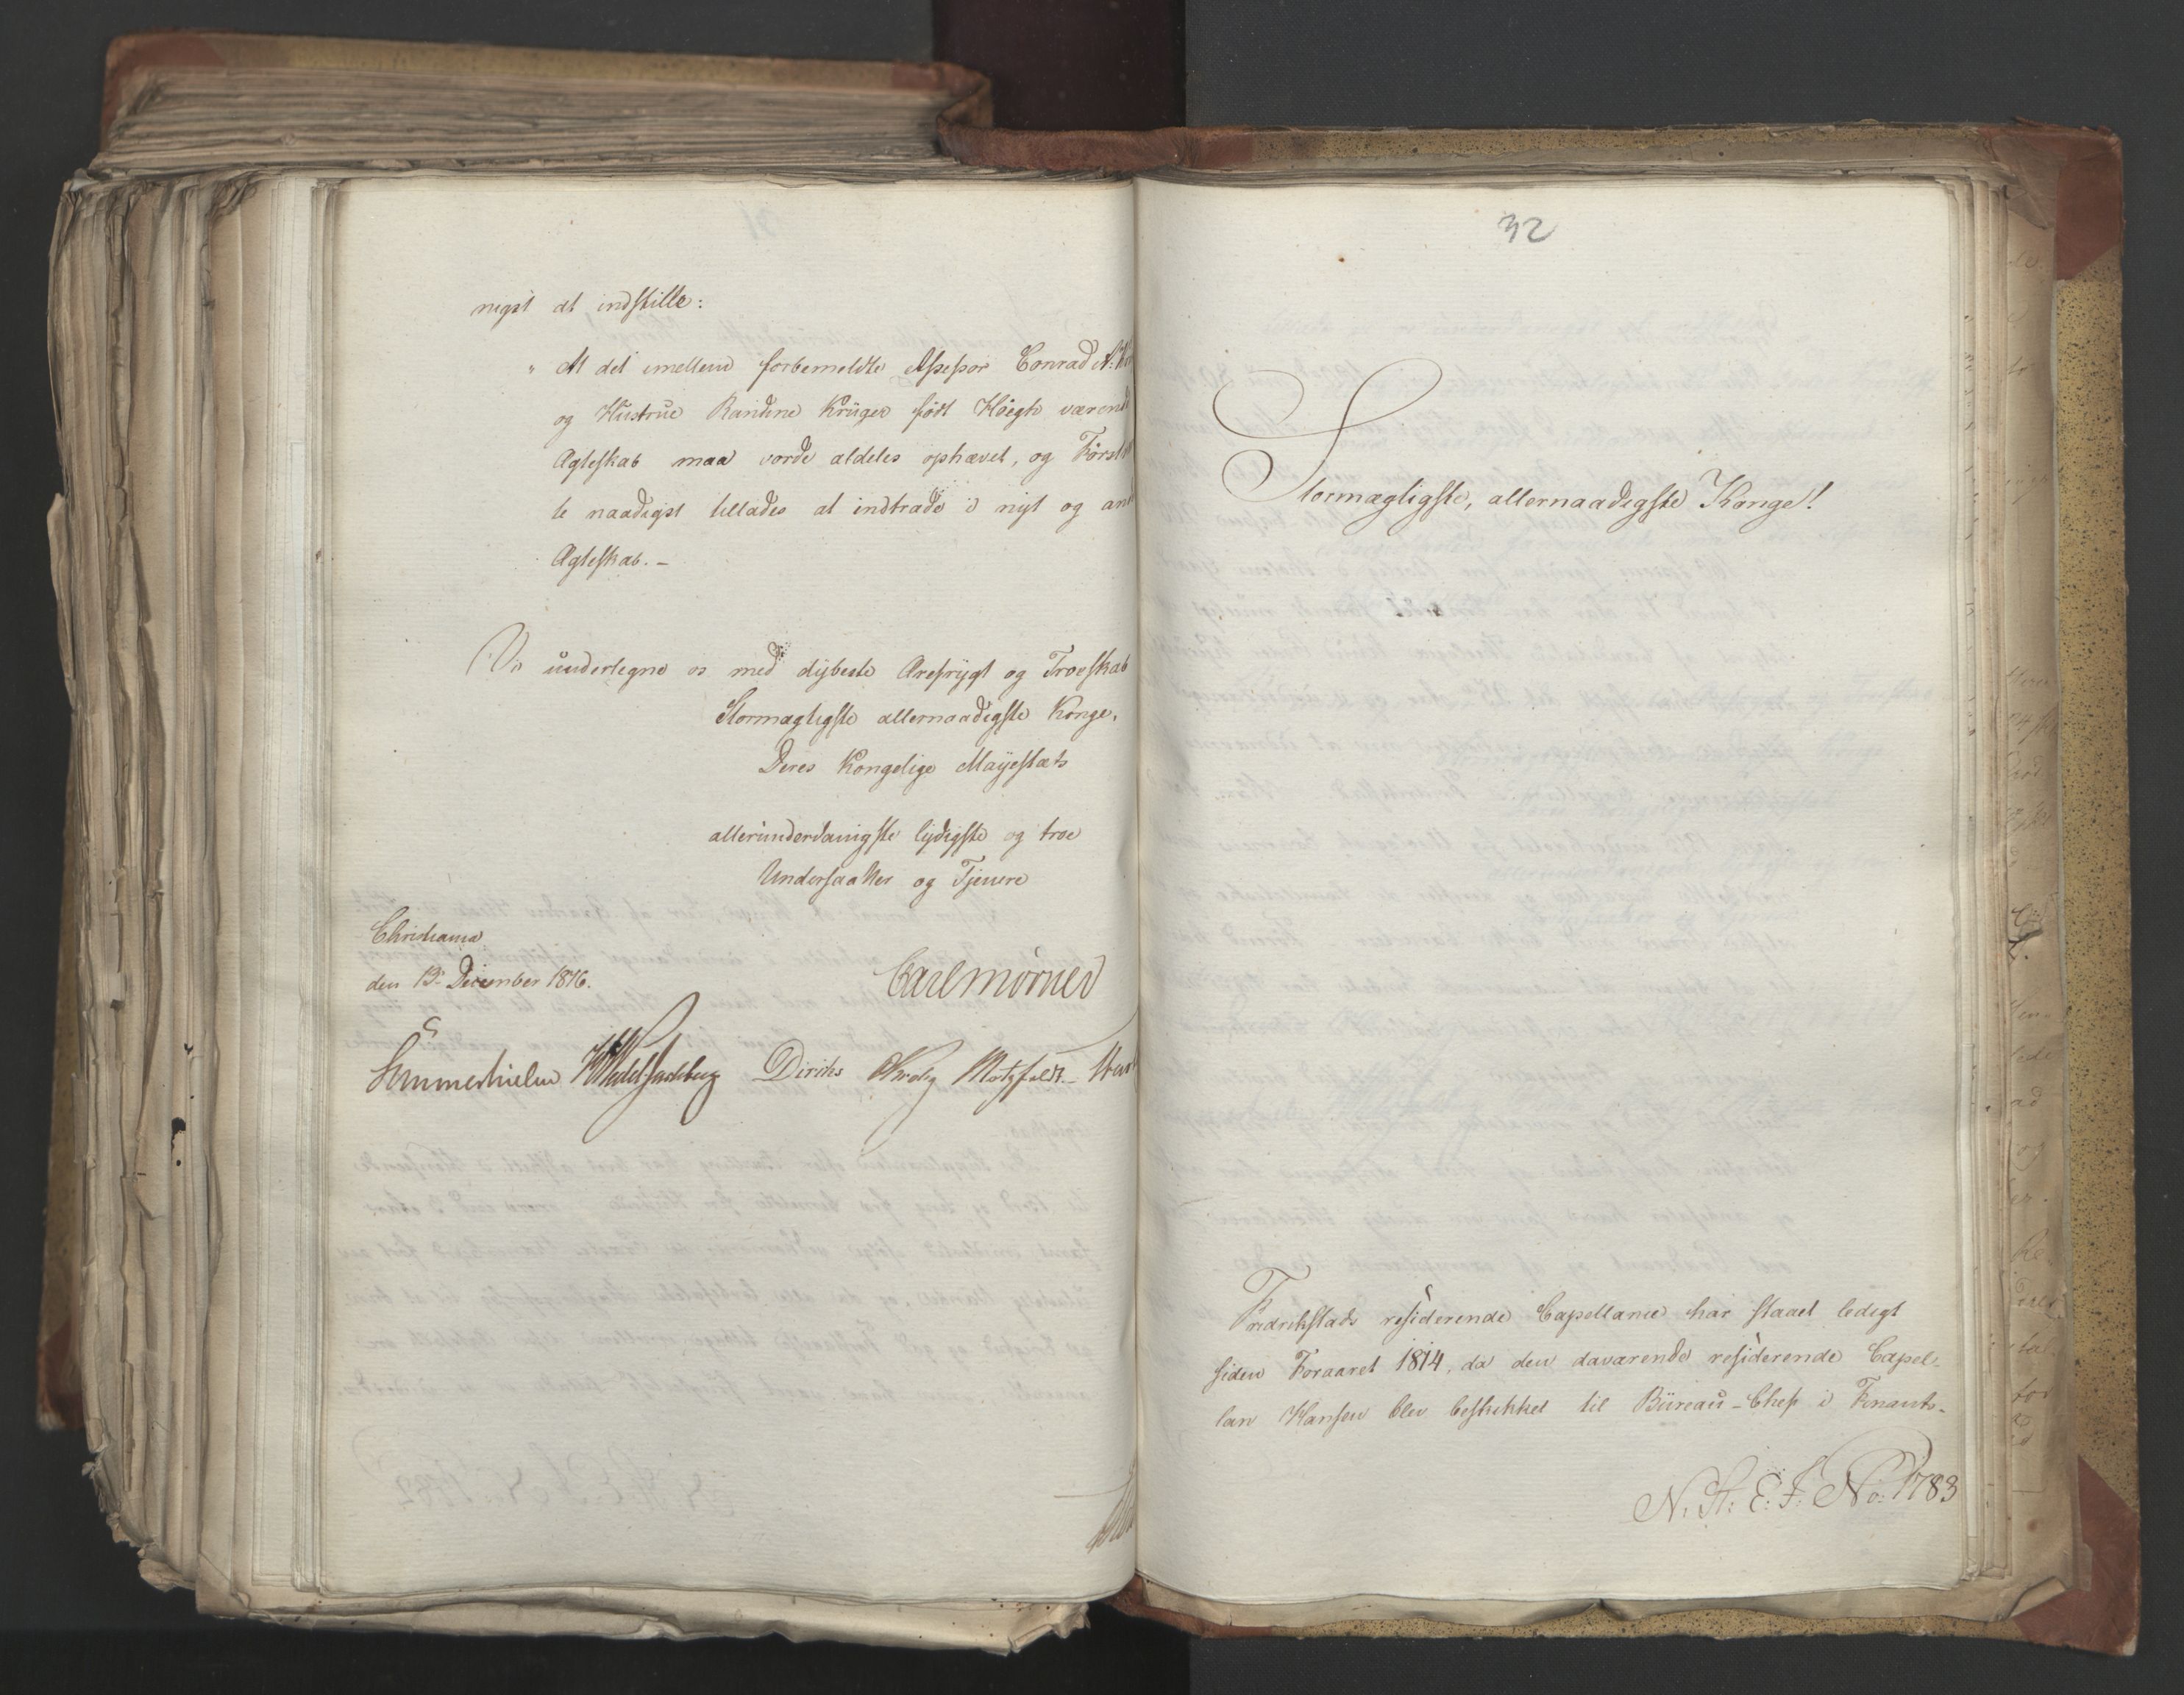 nigst at indstille:
„ At det imellem forbemeldte Assessor Conrad A:
og Hustrue Randine Krüger født Høegh værende
Ægteskab maa vorde aldeles ophævet, og Først
te naadigst tillades at indtræde i nyt og an
Ægteskab. –
Vi undertegne os med dybeste Ærefrygt og Troeskab
Stormægtigste allernaadigste Konge,
Deres Kongelige Mayestæts
allerunderdanigste lydigste og troe
Undersaatter og Tjenere
Christiania
den 13 December 1816.
Carl Mörner
Sommerhielm Wedel Jarlsberg Diriks Krog Motzfeldt
32
Stormægtigste, allernaadigste Konge!
Fredrikstads residerende Capellanie har staaet ledigt
siden Foraaret 1814, da den daværende residerende Capel-
lan Hansen blev beskikket til Büreau-Chef i Finants-
N. St: E: F: No: 1783